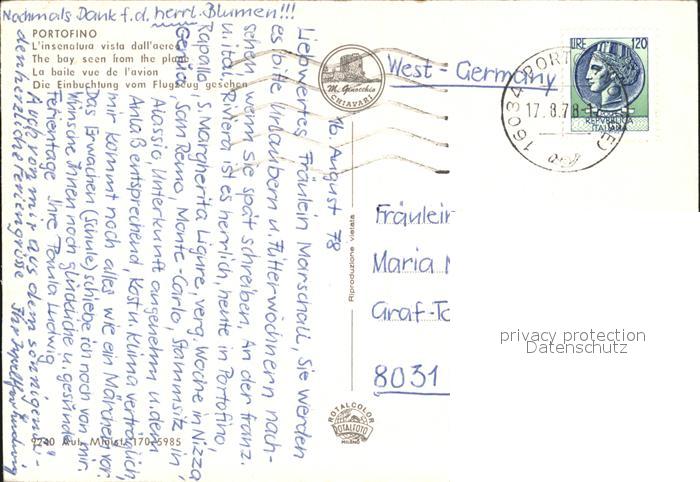 Nochmals Dank f. d. herrl. Blumen!!!
PORTOFINO
L'insenatura vista dall'aereo
The bay seen from the plane
La baile vue de l'avion
Die Einbuchtung vom Flugzeug gesehen
16. August 78
Liebwertes Fräulein Marschall, Sie werden
es bitte Urlaubern u. Flitterwöchnern nach-
sehen, wenn sie spät schreiben. An der franz.
u. ital. Riviera ist es herrlich, heute in Portofino,
Rapallo, S. Margherita Ligure, verg. Woche in Nizza
Genua, San Remo, Monte-Carlo, Stammsitz in
Alassio, Unterkunft angenehm u. dem
Anlaß entsprechend, Kost u. Klima verträglich,
mir kommt noch alles wie ein Märchen vor
Das Erwachen (Schule) schiebe ich noch von mir.
Wünsche Ihnen noch glückliche u. gesunde
Ferientage Ihre Paula Ludwig
Auch von mir aus dem sonnigen
den herzliche Feriengrüße Ihr Ludwig
9240 Aut. Minist. 170-5985
M. Ginocchio
CHIAVARI
Riproduzione vietata
ROTALCOLOR
ROTALFOTO
MILANO
West-Germany
16034 PORT
17.8.78
LIRE 120
REPVBBLICA
ITALIANA
Fräulein
Maria
Graf-To
8031
privacy protection
Datenschutz